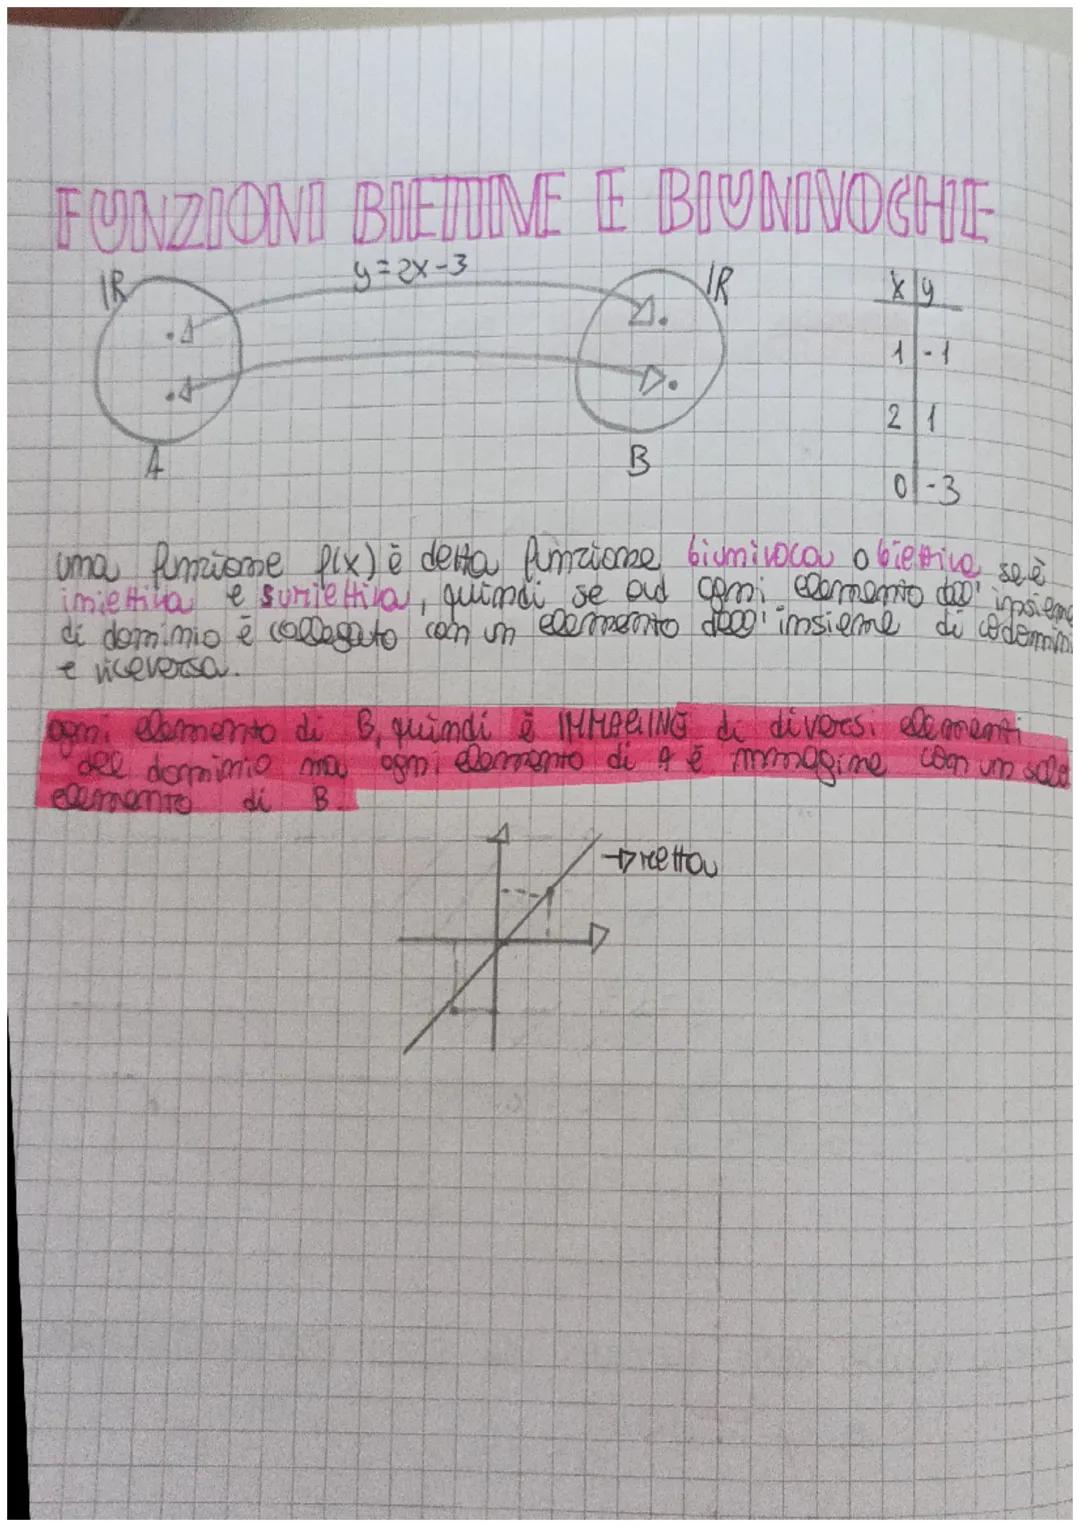 FUNZIONI BIETTIVE E BIUNIVOCHE
y=2x-3
IR
IR
A
B
x y
1 -1
2 1
0 -3
una funzione f(x) è detta funzione biunivoca o biettiva se è
iniettiva e suriettiva, quindi se ad ogni elemento dell'insieme
di dominio è collegato con un elemento dell'insieme di codomini
e viceversa.
ogni elemento di B, quindi è di diversi elementi
del dominio ma ogni elemento di A è immagine con un solo
elemento di B.
retta